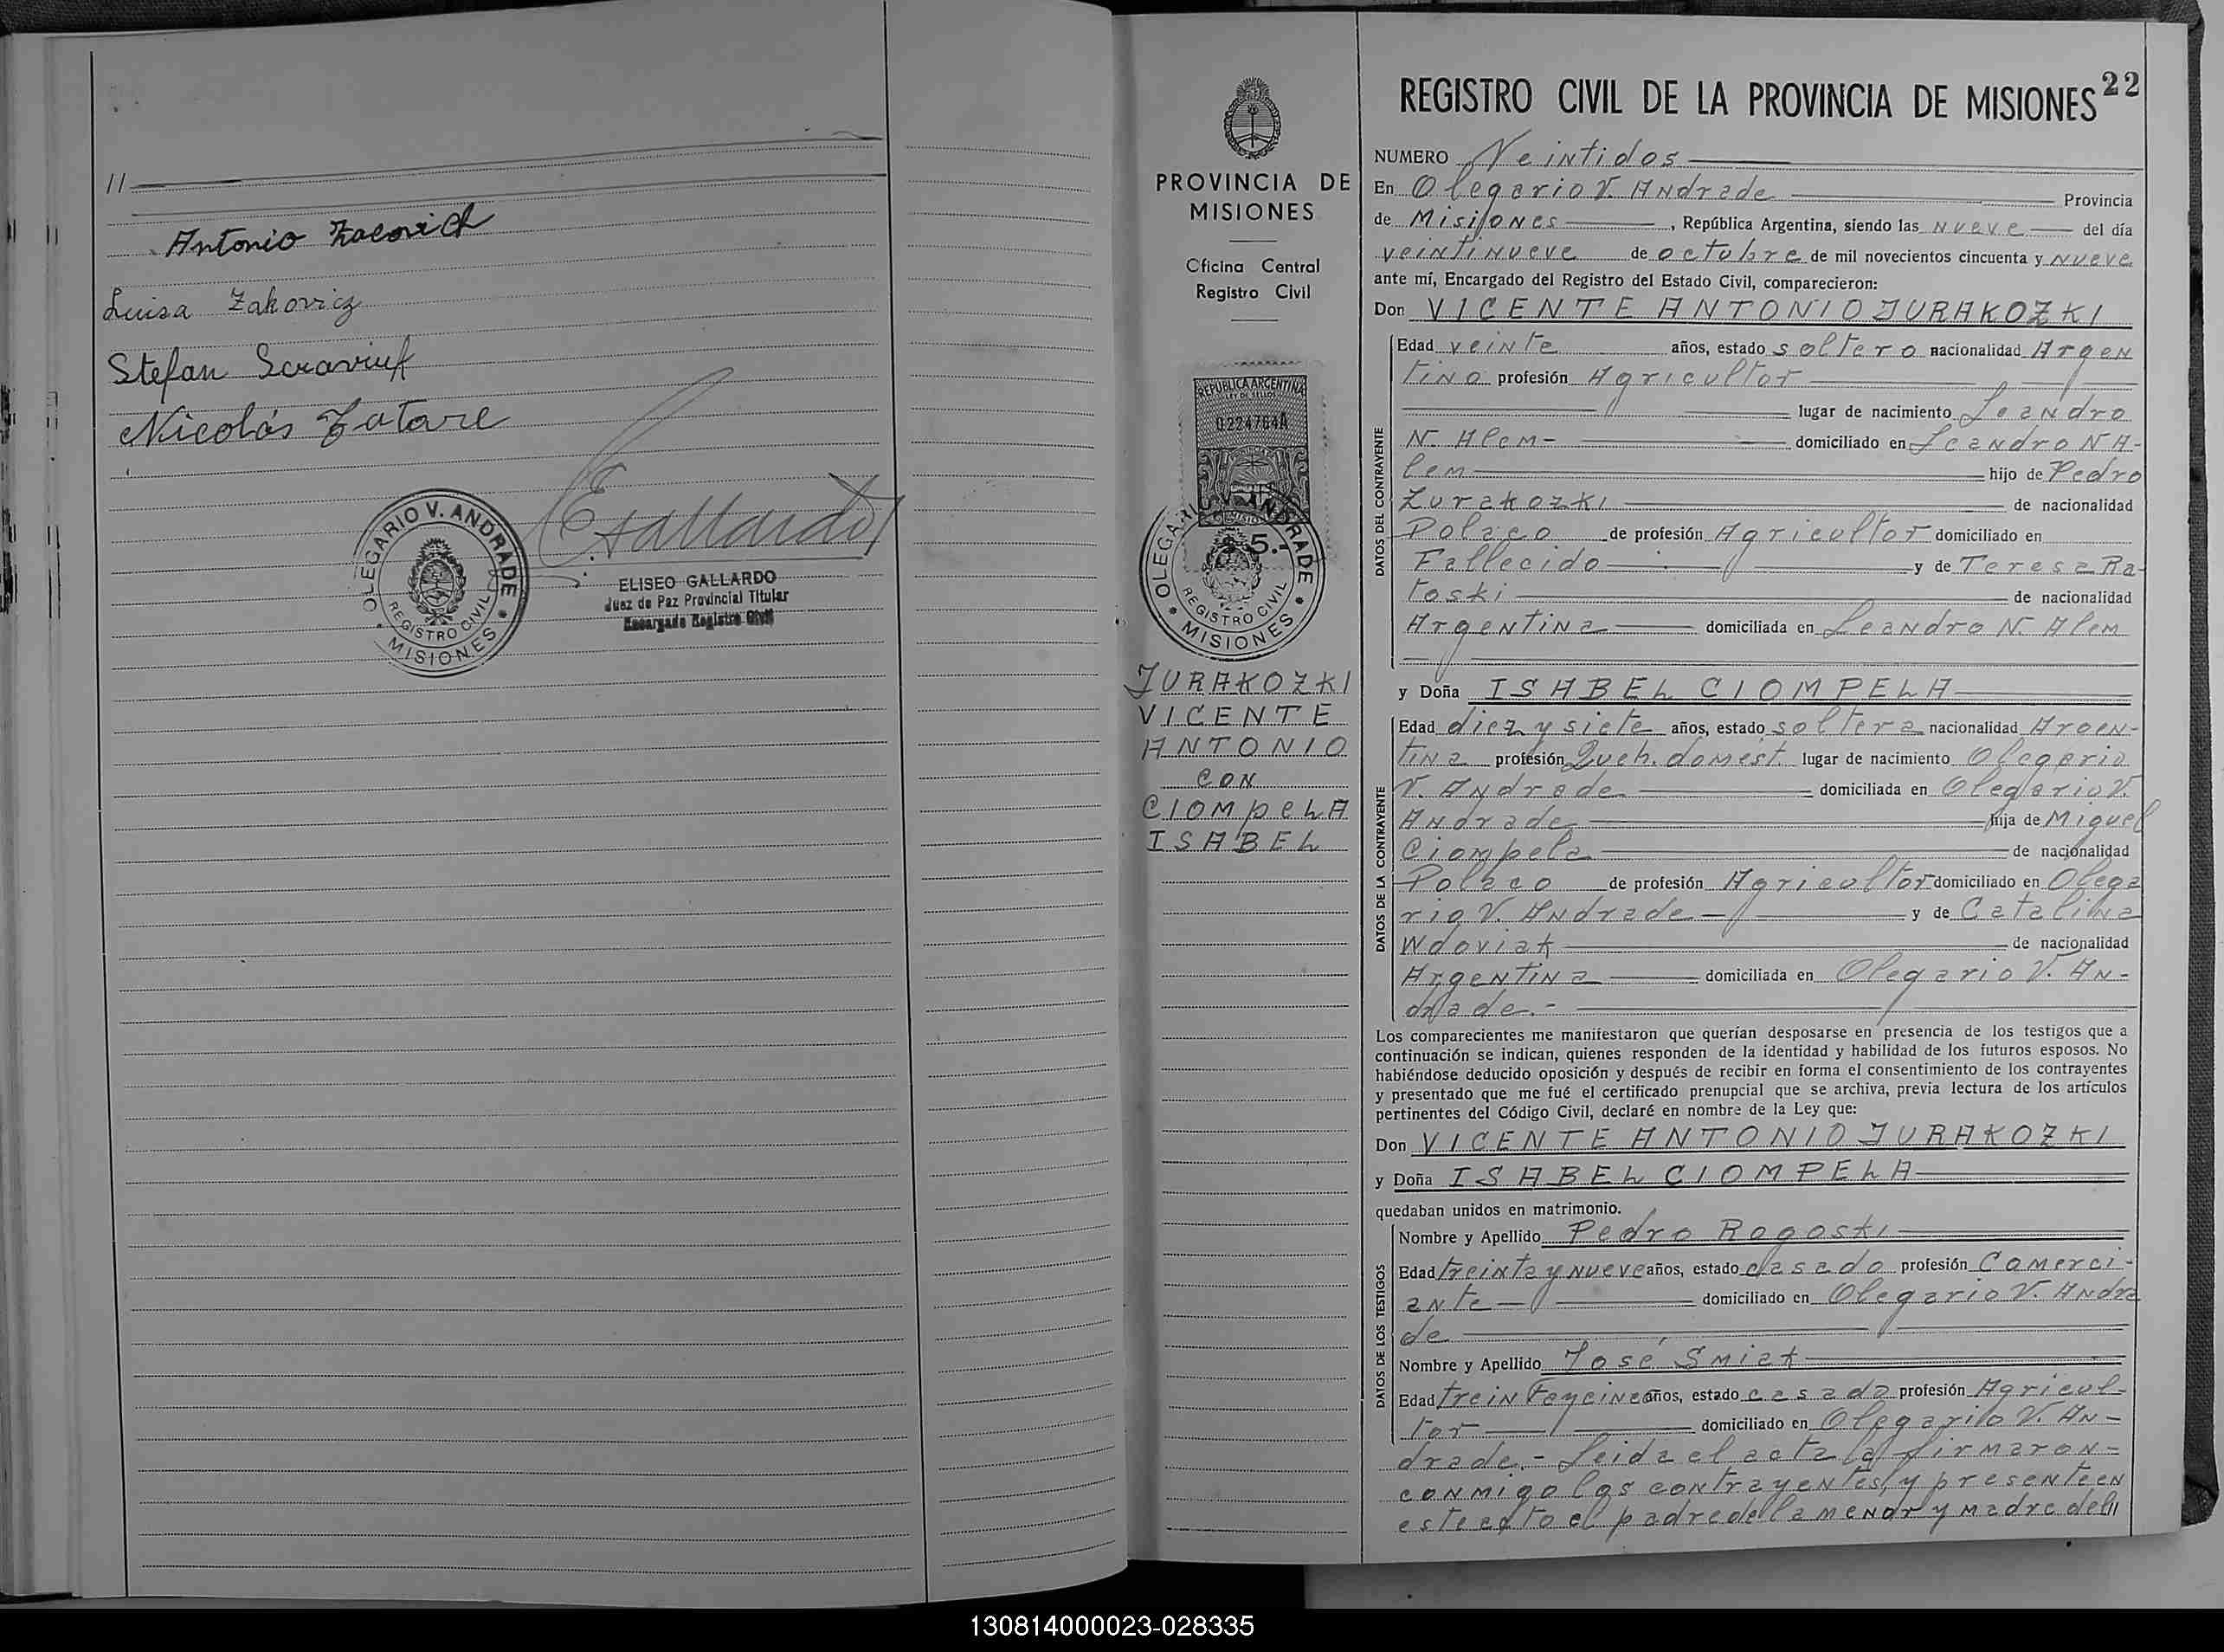 //
Antonio Zacovich
Luisa Zakovicz
Stefan
Nicolás Zatare
OLEGARIO V. ANDRADE
REGISTRO CIVIL
* MISIONES *
EGallardo
ELISEO GALLARDO
Juez de Paz Provincial Titular
Encargado Registro Civil
PROVINCIA DE
MISIONES
Oficina Central
Registro Civil
REPUBLICA ARGENTINA
LEY DE SELLOS
0224764A
$ 5.-
OLEGARIO V. ANDRADE
REGISTRO CIVIL
* MISIONES *
JURAKOZKI
VICENTE
ANTONIO
CON
CIOMpeLA
ISABEL
REGISTRO CIVIL DE LA PROVINCIA DE MISIONES 22
NUMERO Veintidos
En Olegario V. Andrade Provincia
de Misiones, República Argentina, siendo las nueve del día
veintinueve de octubre de mil novecientos cincuenta y nueve
ante mí, Encargado del Registro del Estado Civil, comparecieron:
Don VICENTE ANTONIO JURAKOZKI
DATOS DEL CONTRAYENTE
Edad veinte años, estado soltero nacionalidad Argen
tino profesión Agricultor
lugar de nacimiento Leandro
N. Alem- domiciliado en Leandro N A-
lem hijo de Pedro
Zurakozki de nacionalidad
Polaco de profesión Agricultor domiciliado en
Fallecido y de Teresa Ra-
toski de nacionalidad
Argentina domiciliada en Leandro N. Alem
y Doña ISABEL CIOMPELA
DATOS DE LA CONTRAYENTE
Edad diez y siete años, estado soltera nacionalidad Argen-
tina profesión Queh. domést. lugar de nacimiento Olegario
V. Andrade domiciliada en Olegario V.
Andrade hija de Miguel
Ciompela de nacionalidad
Polaco de profesión Agricultor domiciliado en Olega
rio V. Andrade y de Catalina
Wdoviak de nacionalidad
Argentina domiciliada en Olegario V. An-
drade.-
Los comparecientes me manifestaron que querían desposarse en presencia de los testigos que a
continuación se indican, quienes responden de la identidad y habilidad de los futuros esposos. No
habiéndose deducido oposición y después de recibir en forma el consentimiento de los contrayentes
y presentado que me fué el certificado prenupcial que se archiva, previa lectura de los artículos
pertinentes del Código Civil, declaré en nombre de la Ley que:
Don VICENTE ANTONIO JURAKOZKI
y Doña ISABEL CIOMPELA
quedaban unidos en matrimonio.
DATOS DE LOS TESTIGOS
Nombre y Apellido Pedro Rogoski
Edad treinta y nueve años, estado casado profesión Comerci-
ante domiciliado en Olegario V. Andra
de
Nombre y Apellido José Smiak
Edad treintaycinco años, estado casado profesión Agricul-
tor domiciliado en Olegario V. An-
drade.- Leida el acta la firmaron-
conmigo los contrayentes, y presente en
este acto el padre de la menor y madre del//
130814000023-028335